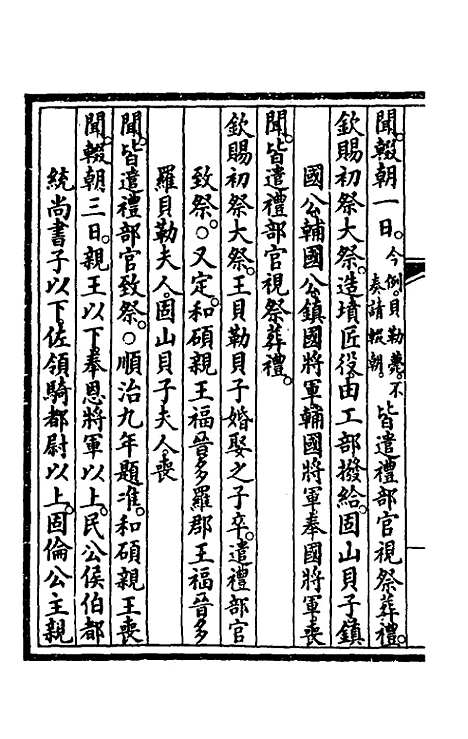 聞。輟朝一日。今例貝勒薨。不奏請輟朝。皆遣禮部官視祭葬禮。
欽賜初祭大祭。造墳匠役。由工部撥給。固山貝子鎮
國公輔國公鎮國將軍輔國將軍奉國將軍喪
聞。皆遣禮部官視祭葬禮。
欽賜初祭大祭。王貝勒貝子婚娶之子卒。遣禮部官
致祭。○又定。和碩親王福晉多羅郡王福晉多
羅貝勒夫人。固山貝子夫人。喪
聞。皆遣禮部官致祭。○順治九年題准。和碩親王喪
聞。輟朝三日。親王以下。奉恩將軍以上。民公侯伯都
統尚書子以下。佐領騎都尉以上。固倫公主親